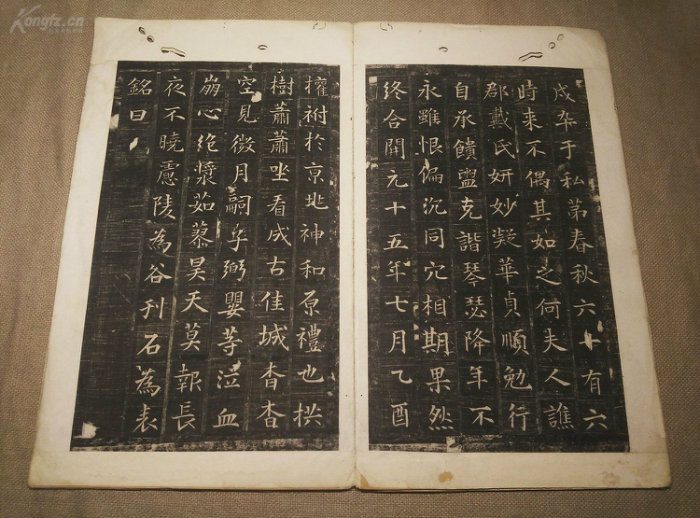 Kongfz.cn
戌卒于私苐春秋六十有六
時来不偶其如之何夫人譙
郡戴氏妍妙凝華貞順勉行
自承饋盥克諧琴瑟降年不
永雖恨偏沉同穴相期果然
終合開元十五年七月乙酉
權祔於京兆神和原禮也拱
樹蕭蕭坐看成古佳城杳杳
空見微月嗣子弼嬰等泣血
崩心絶漿茹慕昊天莫報長
夜不曉慮陵為谷刊石為表
銘曰